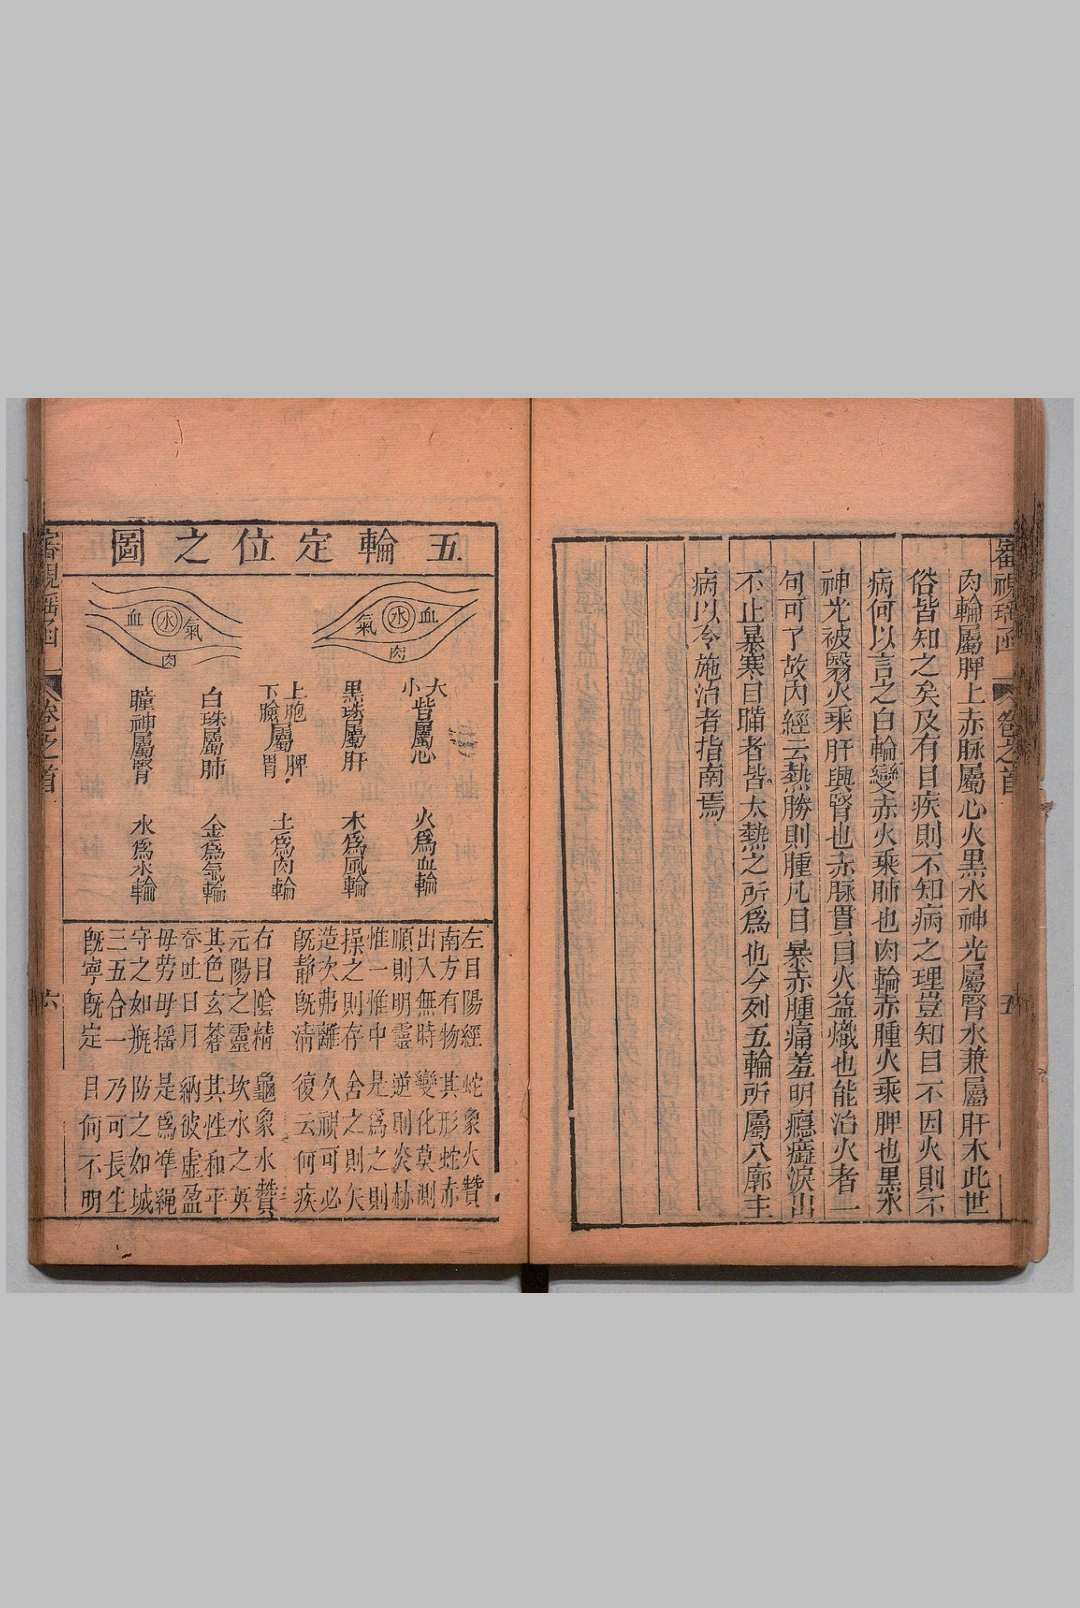 審視瑤函
卷之首
五
肉輪屬脾土赤脉屬心火黑水神光屬腎水兼屬肝木此世
俗皆知之矣及有目疾則不知病之理豈知目不因火則不
病何以言之白輪變赤火乘肺也肉輪赤腫火乘脾也黑水
神光被翳火乘肝與腎也赤脉貫目火益熾也能治火者一
句可了故內經云熱勝則腫凡目暴赤腫痛羞明癮澀淚出
不止暴寒目瞞者皆大熱之所爲也今列五輪所屬八廓主
病以令施治者指南焉
五輪定位之圖
血 水 氣 肉
氣 水 血 肉
大小眥屬心 火爲血輪
黑珠屬肝 木爲風輪
上胞屬脾下瞼屬胃 土爲肉輪
白珠屬肺 金爲氣輪
瞳神屬腎 水爲水輪
左目陽經 蛇象火贊
南方有物 其形蛇赤
出入無時 變化莫測
順則明靈 逆則炎赫
惟一惟中 是爲之則
操之則存 舍之則矢
造次弗離 久視可必
旣静旣淸 復云何疾
右目陰精 龜象水贊
元陽之靈 坎水之英
其色玄蒼 其性和平
吞吐日月 納彼虛盈
毋勞毋揺 是爲準繩
守之如瓶 防之如城
三五合一 乃可長生
旣寧旣定 目何不明
審視瑤函
卷之首
六